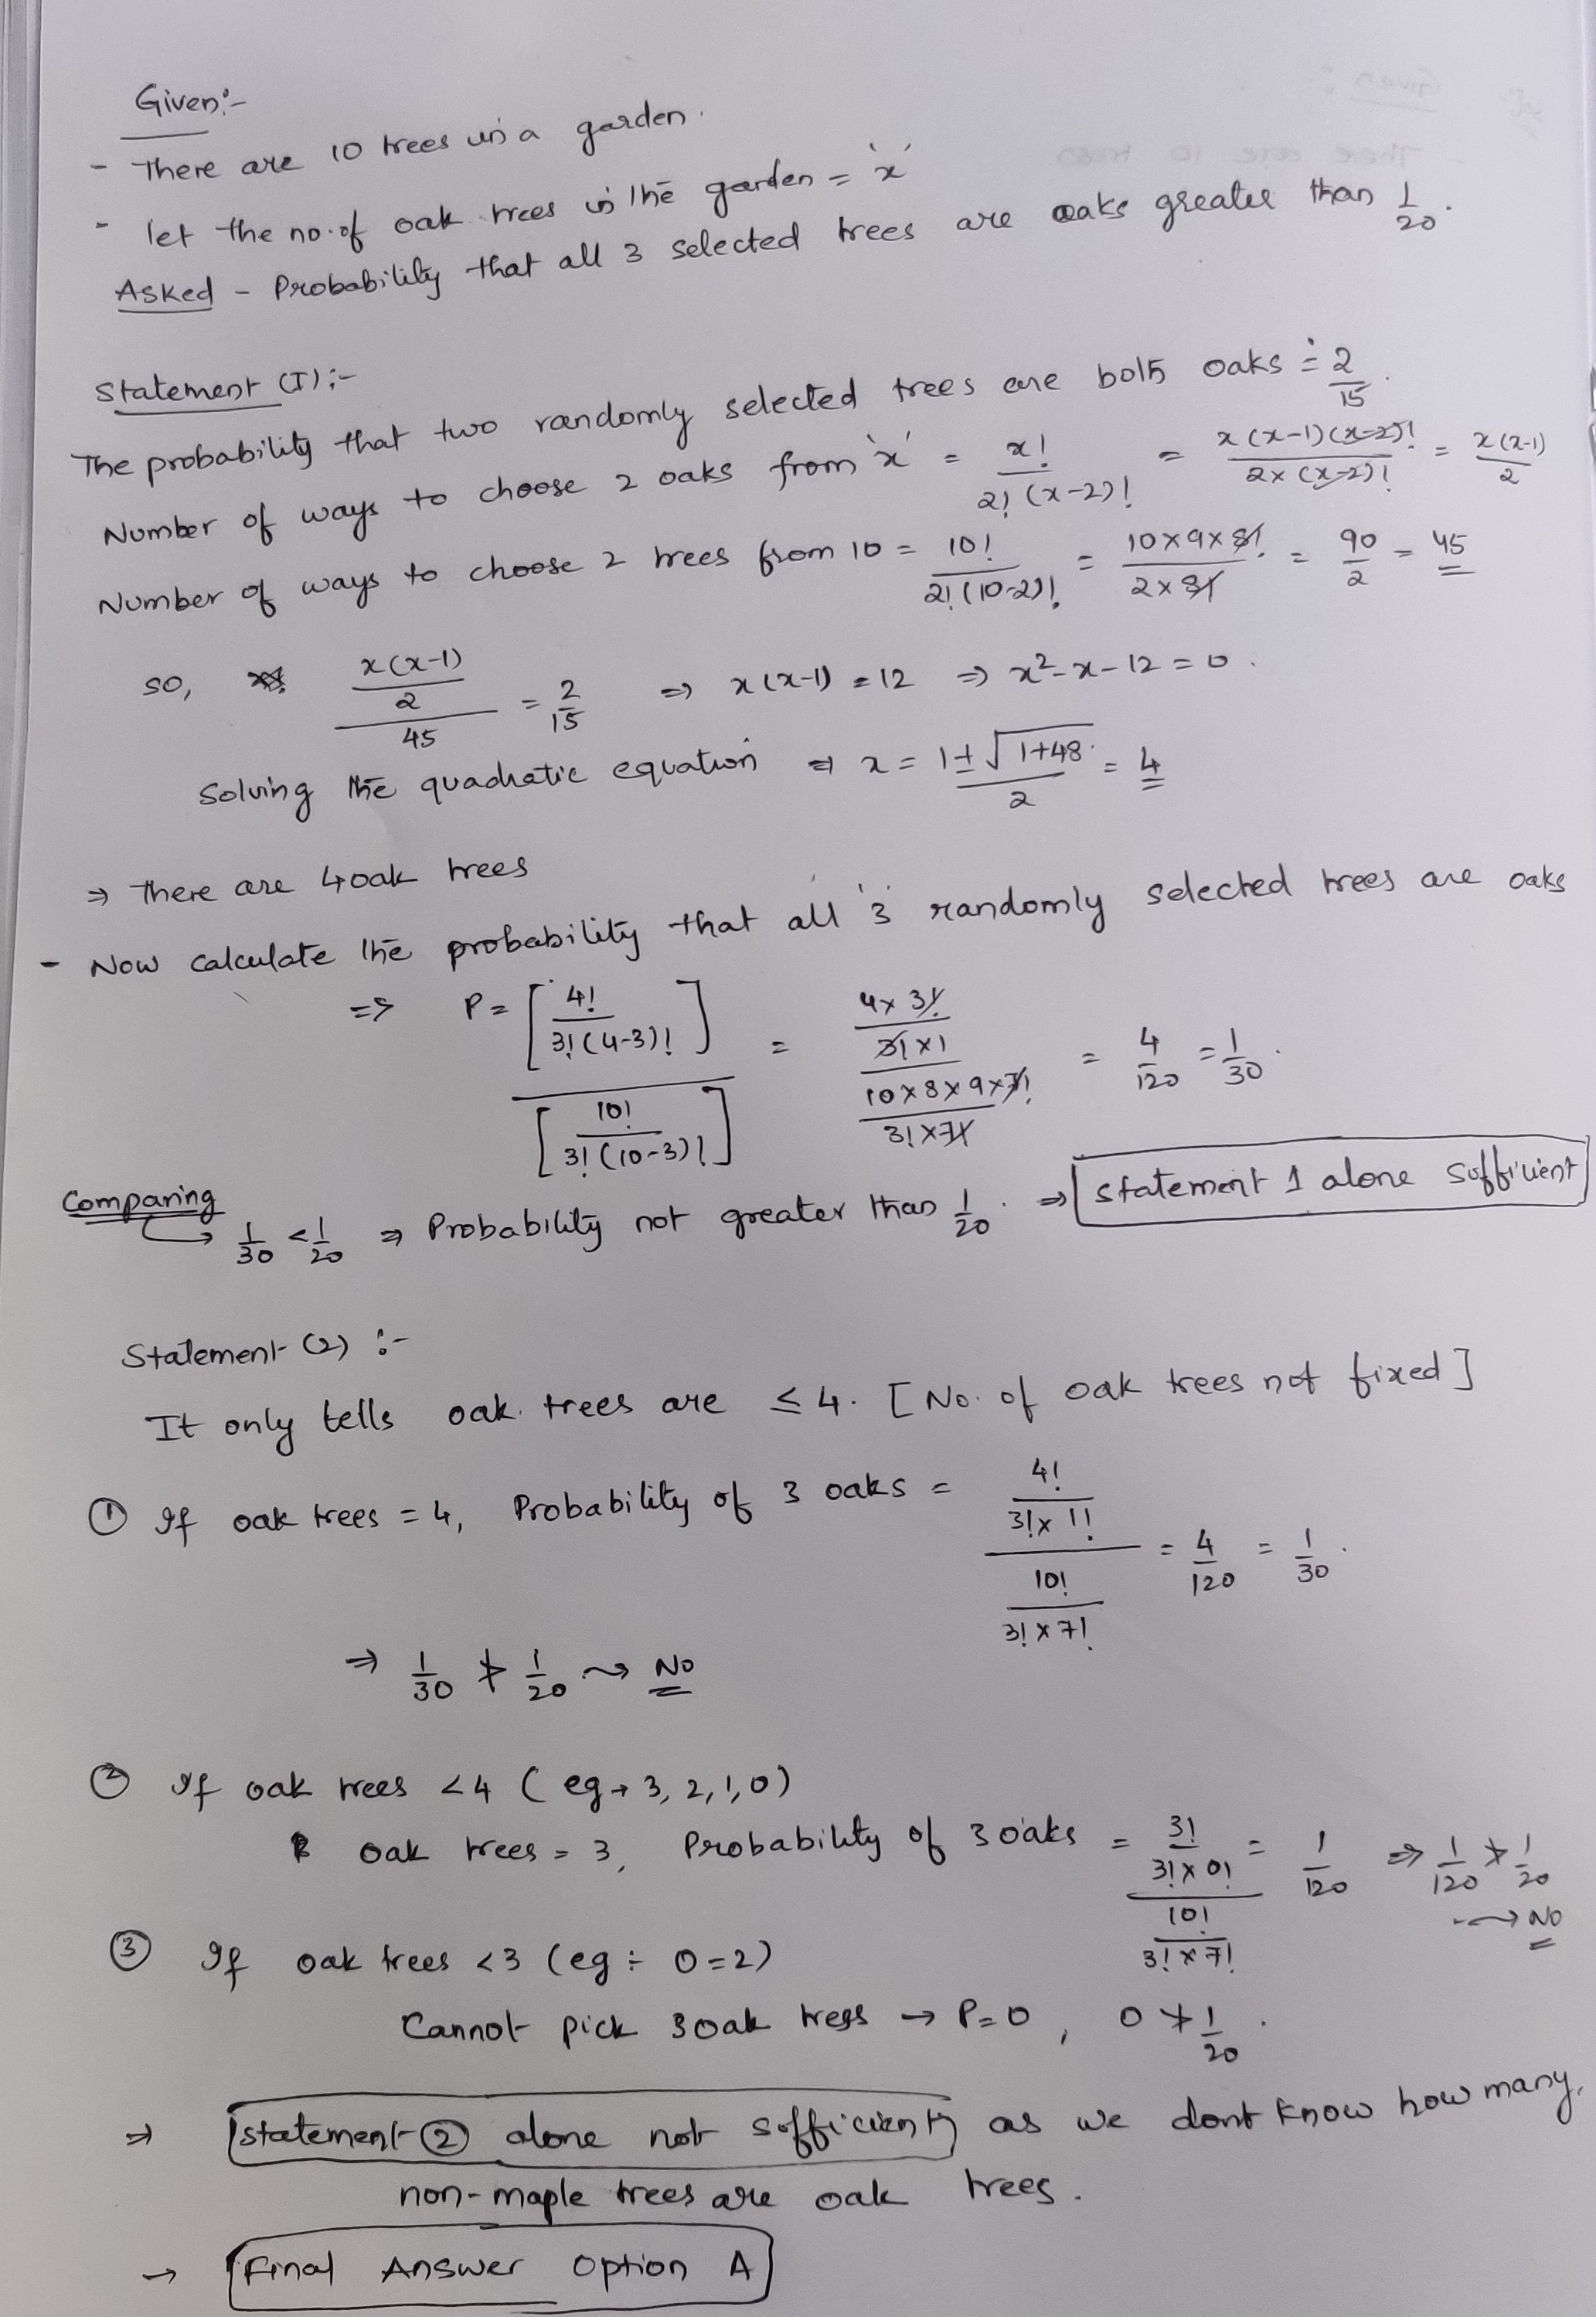 Given:-
- There are 10 trees in a garden.
- let the no. of oak trees in the garden = 'x'
Asked - Probability that all 3 selected trees are oaks greater than 1/20.
Statement (I) :-
The probability that two randomly selected trees are both oaks = 2/15.
Number of ways to choose 2 oaks from 'x' = x!/(2!(x-2)!) = x(x-1)(x-2)!/(2×(x-2)!) = x(x-1)/2
Number of ways to choose 2 trees from 10 = 10!/(2!(10-2)!) = 10×9×8!/(2×8!) = 90/2 = 45
so, (x(x-1)/2)/45 = 2/15 ⇒ x(x-1) = 12 ⇒ x²-x-12 = 0.
Solving the quadratic equation ⇒ x = (1±√(1+48))/2 = 4
⇒ There are 4 oak trees
- Now calculate the probability that all '3' randomly selected trees are oaks
⇒ P = [4!/(3!(4-3)!)]/[10!/(3!(10-3)!)] = (4×3!/(3!×1))/(10×8×9×7!/(3!×7!)) = 4/120 = 1/30.
Comparing
1/30 < 1/20 ⇒ Probability not greater than 1/20. ⇒ statement 1 alone sufficient
Statement (2) :-
It only tells oak trees are ≤ 4. [No. of oak trees not fixed]
① If oak trees = 4, Probability of 3 oaks = (4!/(3!×1!))/(10!/(3!×7!)) = 4/120 = 1/30.
⇒ 1/30 ≯ 1/20 ⇝ No
② If oak trees <4 (eg → 3, 2, 1, 0)
oak trees = 3, Probability of 3 oaks = (3!/(3!×0!))/(10!/(3!×7!)) = 1/120 ⇒ 1/120 ≯ 1/20
⇝ No
③ If oak trees <3 (eg ÷ 0=2)
Cannot pick 3 oak tress → P=0, 0 ≯ 1/20.
⇒ statement ② alone not sufficient as we dont know how many
non-maple trees are oak trees.
→ Final Answer Option A